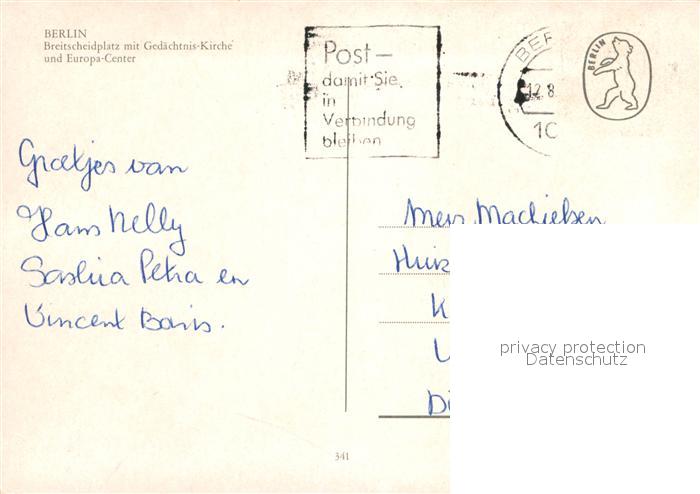 BERLIN
Breitscheidplatz mit Gedächtnis-Kirche
und Europa-Center
Post —
damit Sie
in
Verbindung
bleiben
BER
12.8
10
BERLIN
Groetjes van
Hans Nelly
Saskia Petra en
Vincent Boris.
Mevr Machielsen
Huiz
K
Di
privacy protection
Datenschutz
341